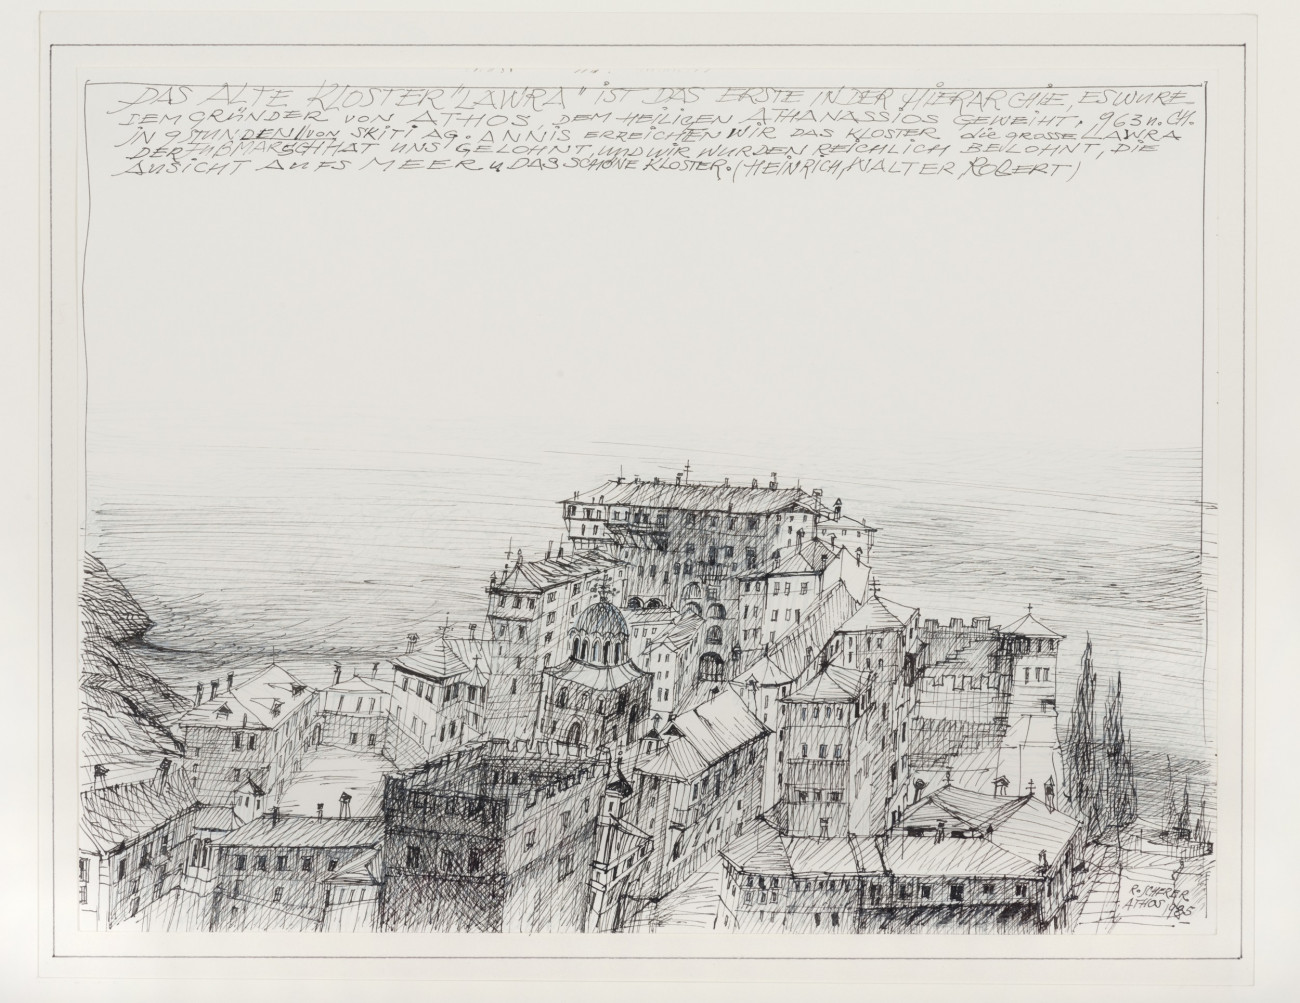 DAS ALTE KLOSTER "LAWRA" IST DAS ERSTE IN DER HIERARCHIE, ES WURE
DEM GRÜNDER VON ATHOS, DEM HEILIGEN ATHANASSIOS GEWEIHT. 963 n. CH.
IN 9 STUNDEN VON SKITI AG. ANNIS ERREICHEN WIR DAS KLOSTER die grosse LAWRA
DER FUßMARSCH HAT UNS GELOHNT, UND WIR WURDEN REICHLICH BELOHNT, DIE
AUSICHT AUFS MEER u DAS SCHÖNE KLOSTER. (HEINRICH, WALTER, ROBERT)
R. SCHERER
ATHOS 985